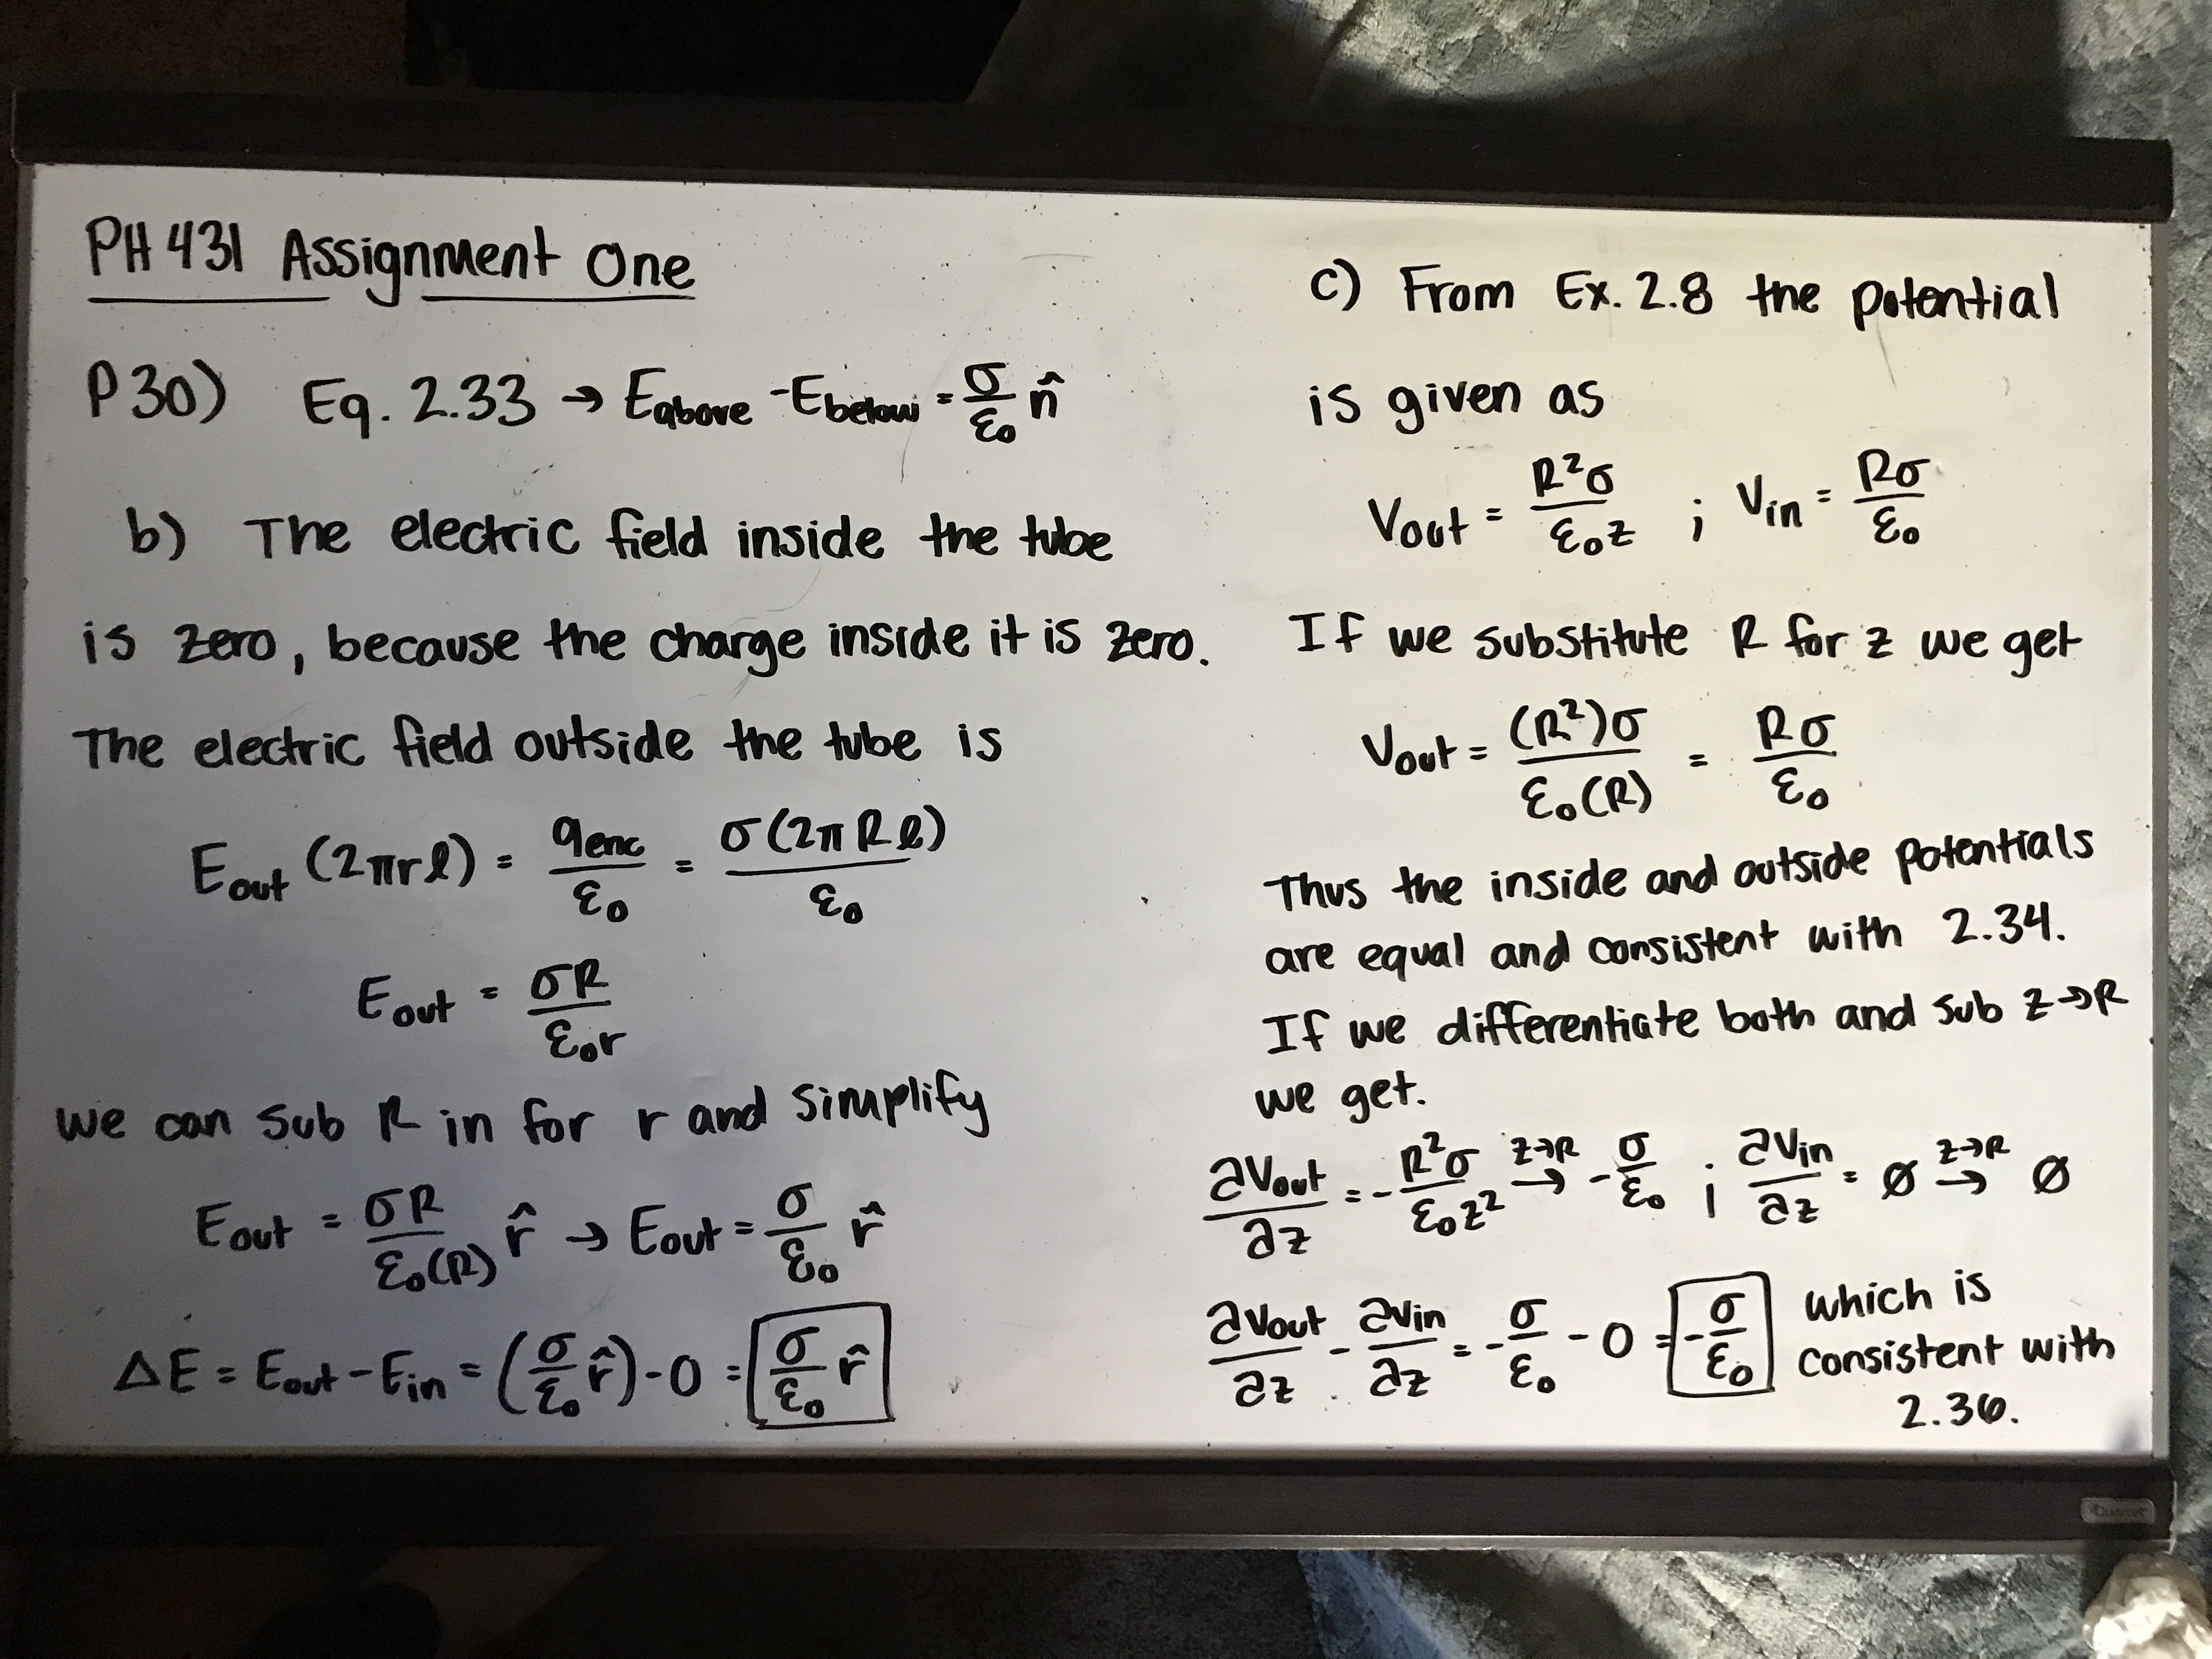 PH 431 Assignment One
P30) Eq. 2.33 → Eabove - Ebelow = σ/ε₀ n̂
b) The electric field inside the tube
is zero, because the charge inside it is zero.
The electric field outside the tube is
Eout (2πrℓ) = qenc/ε₀ = σ(2πRℓ)/ε₀
Eout = σR/ε₀r
we can sub R in for r and simplify
Eout = σR/ε₀(R) r̂ → Eout = σ/ε₀ r̂
ΔE = Eout - Ein = (σ/ε₀ r̂) - 0 = σ/ε₀ r̂
c) From Ex. 2.8 the potential
is given as
Vout = R²σ/ε₀z ; Vin = Rσ/ε₀
If we substitute R for z we get
Vout = (R²)σ/ε₀(R) = Rσ/ε₀
Thus the inside and outside potentials
are equal and consistent with 2.34.
If we differentiate both and sub z→R
we get.
∂Vout/∂z = -R²σ/ε₀z² z→R → -σ/ε₀ ; ∂Vin/∂z = Ø z→R → Ø
∂Vout/∂z - ∂Vin/∂z = -σ/ε₀ - 0 = -σ/ε₀ which is
consistent with
2.36.